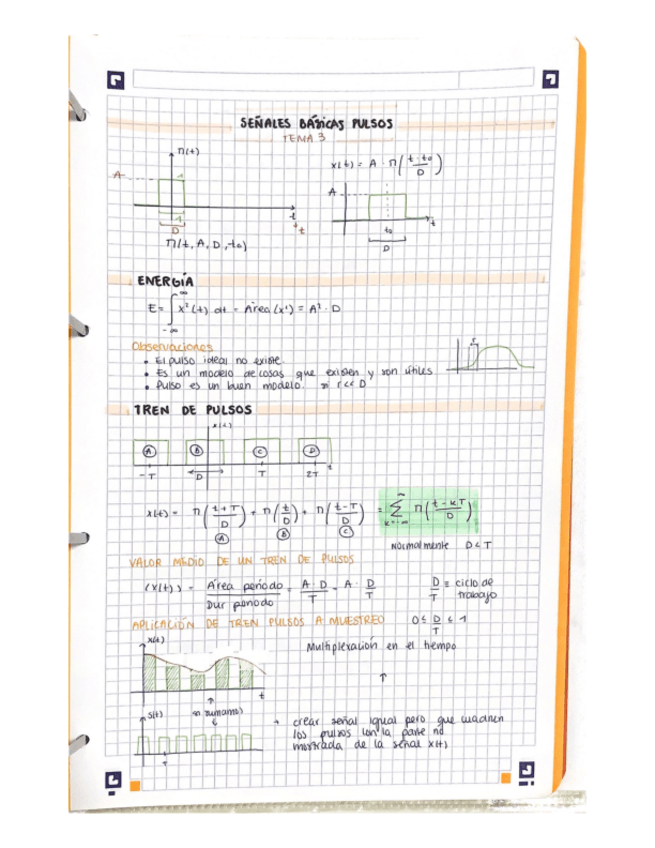 SEÑALES BÁSICAS PULSOS
TEMA 3
Π(t)
x(t) = A · Π((t-t₀)/D)
A
1
A
1
t
t
D
t₀
t
D
Π(t, A, D, t₀)
ENERGÍA
E = ∫_{-∞}^{∞} x²(t) dt = Área(x²) = A² · D
Observaciones
• El pulso ideal no existe.
• Es un modelo de cosas que existen y son útiles
• Pulso es un buen modelo. si r << D
r
TREN DE PULSOS
x(t)
A B C D
-T D T 2T t
x(t) = Π((t+T)/D) + Π(t/D) + Π((t-T)/D) = Σ_{k=-∞}^{∞} Π((t-kT)/D)
A B C
Normalmente D < T
VALOR MEDIO DE UN TREN DE PULSOS
⟨x(t)⟩ = Área periodo / Dur periodo = A · D / T = A · D/T
D/T ≡ ciclo de trabajo
APLICACIÓN DE TREN PULSOS A MUESTREO
0 ≤ D/T ≤ 1
x(t)
Multiplexación en el tiempo
↑
t
↑
s(t)
→ crear señal igual pero que cuadren
los pulsos con la parte no
mostrada de la señal x(t)
T